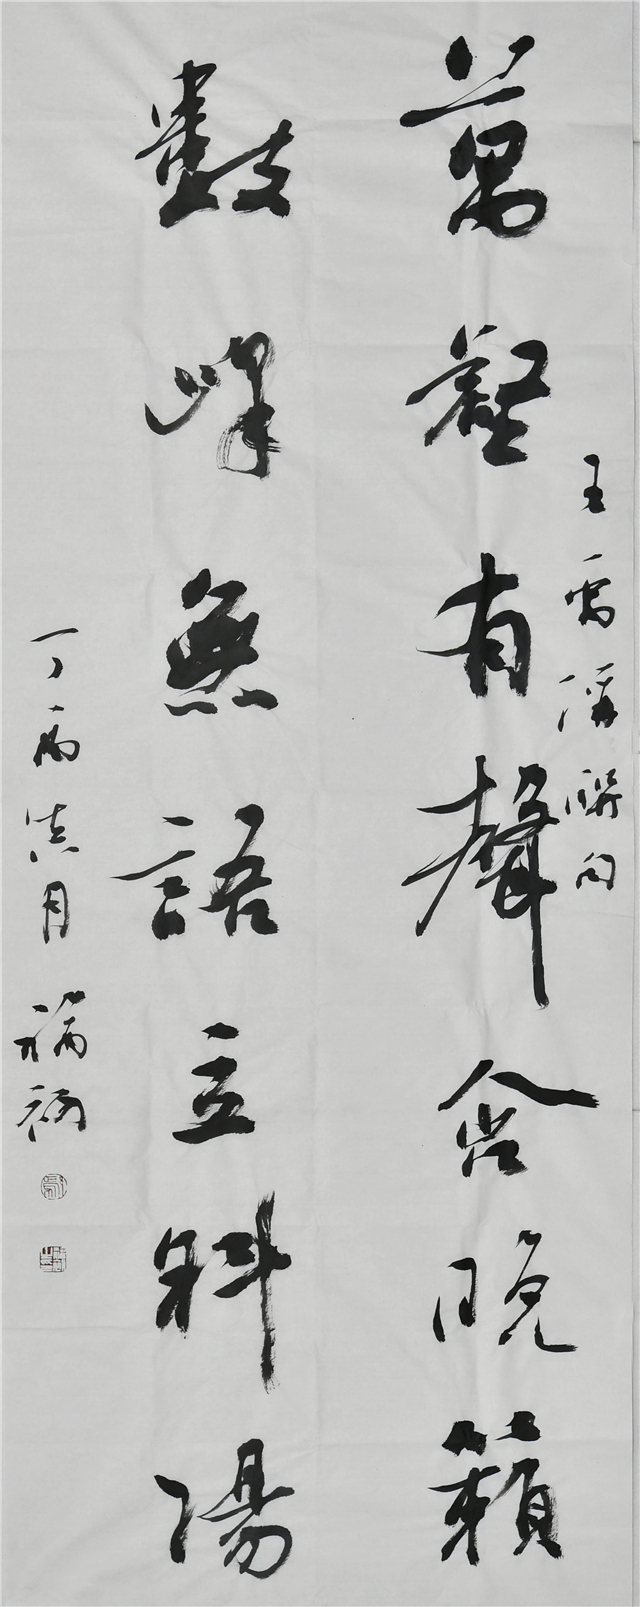 王禹偁聯句
萬壑有聲含晚籟
數峰無語立斜陽
丁酉月福